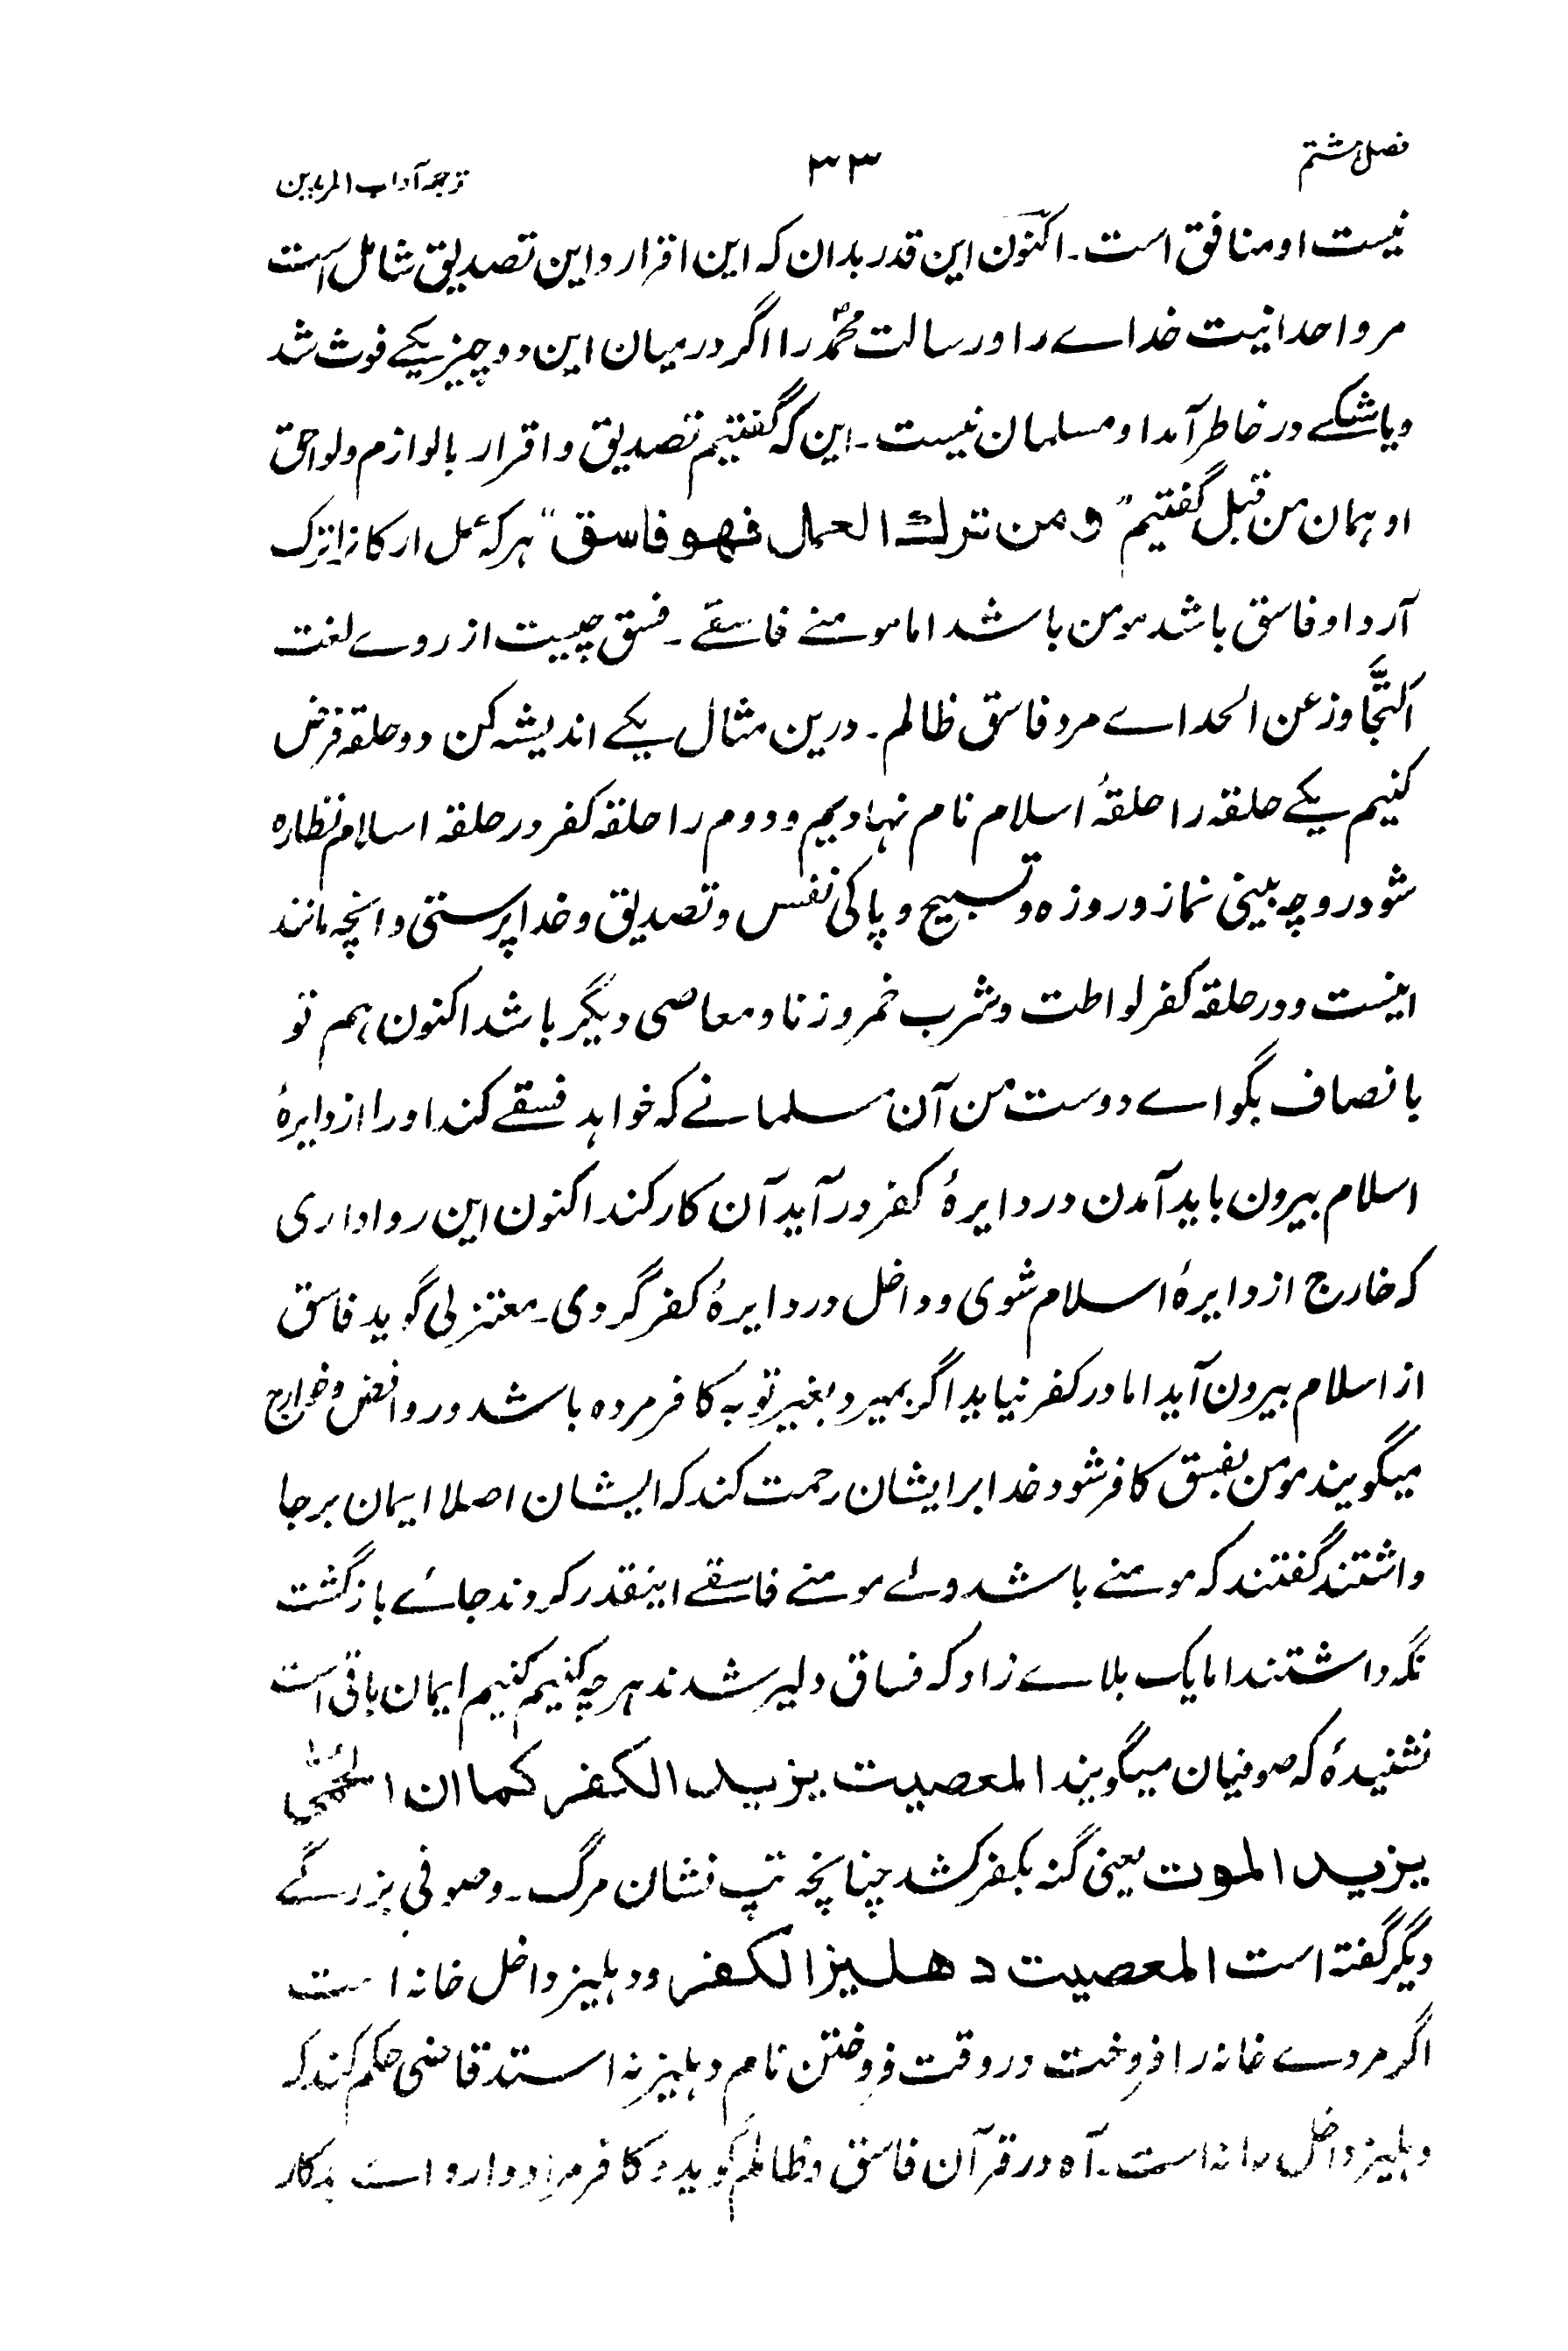 فصل هشتم
۳۳
ترجمہ آداب المریدین
نیست او منافق است۔ اکنون این قدر بدان کہ این اقرار و این تصدیق شامل است
مر واحدانیت خداے را و رسالت محمدؐ را اگر درمیان این دو چیز یکے فوت شد
و یا شکے در خاطر آمد او مسلمان نیست۔ این کہ گفتیم تصدیق و اقرار بالوازم و لواحق
او ہمان من قبل گفتیم ”و من ترك العمل فهو فاسق“ ہر کہ عمل ارکان را ترک
آرد او فاسق باشد مومن باشد اما مومنے فاسقے۔ فسق چیست از روے لغت
اَلتَّجاوز عن الحد اے مرد فاسق ظالم۔ درین مثال یکے اندیشہ کن دو حلقہ فرض
کنیم یکے حلقہ را حلقۂ اسلام نام نہادیم و دوم را حلقہ کفر در حلقہ اسلام نظارہ
شو درو چہ بینی نماز و روزہ و تسبیح و پاکی نفس و تصدیق و خدا پرستی و انچہ مانند
اینست و در حلقہ کفر لواطت و شرب خمر و زنا و معاصی دیگر باشد اکنون ہم تو
بانصاف بگو اے دوست من آن مسلمانے کہ خواہد فسقے کند او را از دایرۂ
اسلام بیرون باید آمدن در دایرۂ کفر در آید آن کار کند اکنون این رواداری
کہ خارج از دایرۂ اسلام شوی و داخل در دایرۂ کفر گردی۔ معتزلی گوید فاسق
از اسلام بیرون آید اما در کفر نیاید اگر بمیرد بغیر توبہ کافر مردہ باشد و روافض و خوارج
میگویند مومن بفسق کافر شود خدا بر ایشان رحمت کند کہ ایشان اصلا ایمان برجا
داشتند گفتند کہ مومنے باشد ولے مومنے فاسقے اینقدر کردند جاے بازگشت
نگہ داشتند اما یک بلاے زاد کہ فساق دلیر شدند ہر چہ کنیم کنیم ایمان باقی است
نشنیدۂ کہ صوفیان میگویند المعصیت یزید الکفر کما ان الحُمّٰی
یزید الموت یعنی گنہ بکفر کشد چنانچہ تپ نشان مرگ۔ و صوفی بزرگے
دیگر گفتہ است المعصیت دهلیز الکفر و دہلیز داخل خانہ است
اگر مردے خانہ را فروخت در وقت فروختن نام دہلیز نہ استد قاضی حکم کند کہ
دہلیز داخل خانہ است۔ آہ در قرآن فاسق و ظالم گوید و کافر مراد دارد است